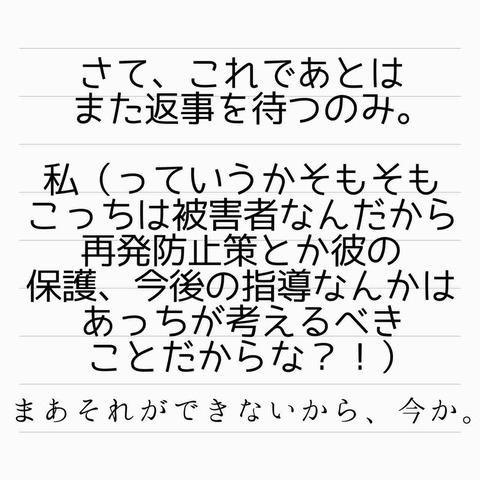 さて、これであとは
また返事を待つのみ。
私（っていうかそもそも
こっちは被害者なんだから
再発防止策とか彼の
保護、今後の指導なんかは
あっちが考えるべき
ことだからな？！）
まあそれができないから、今か。